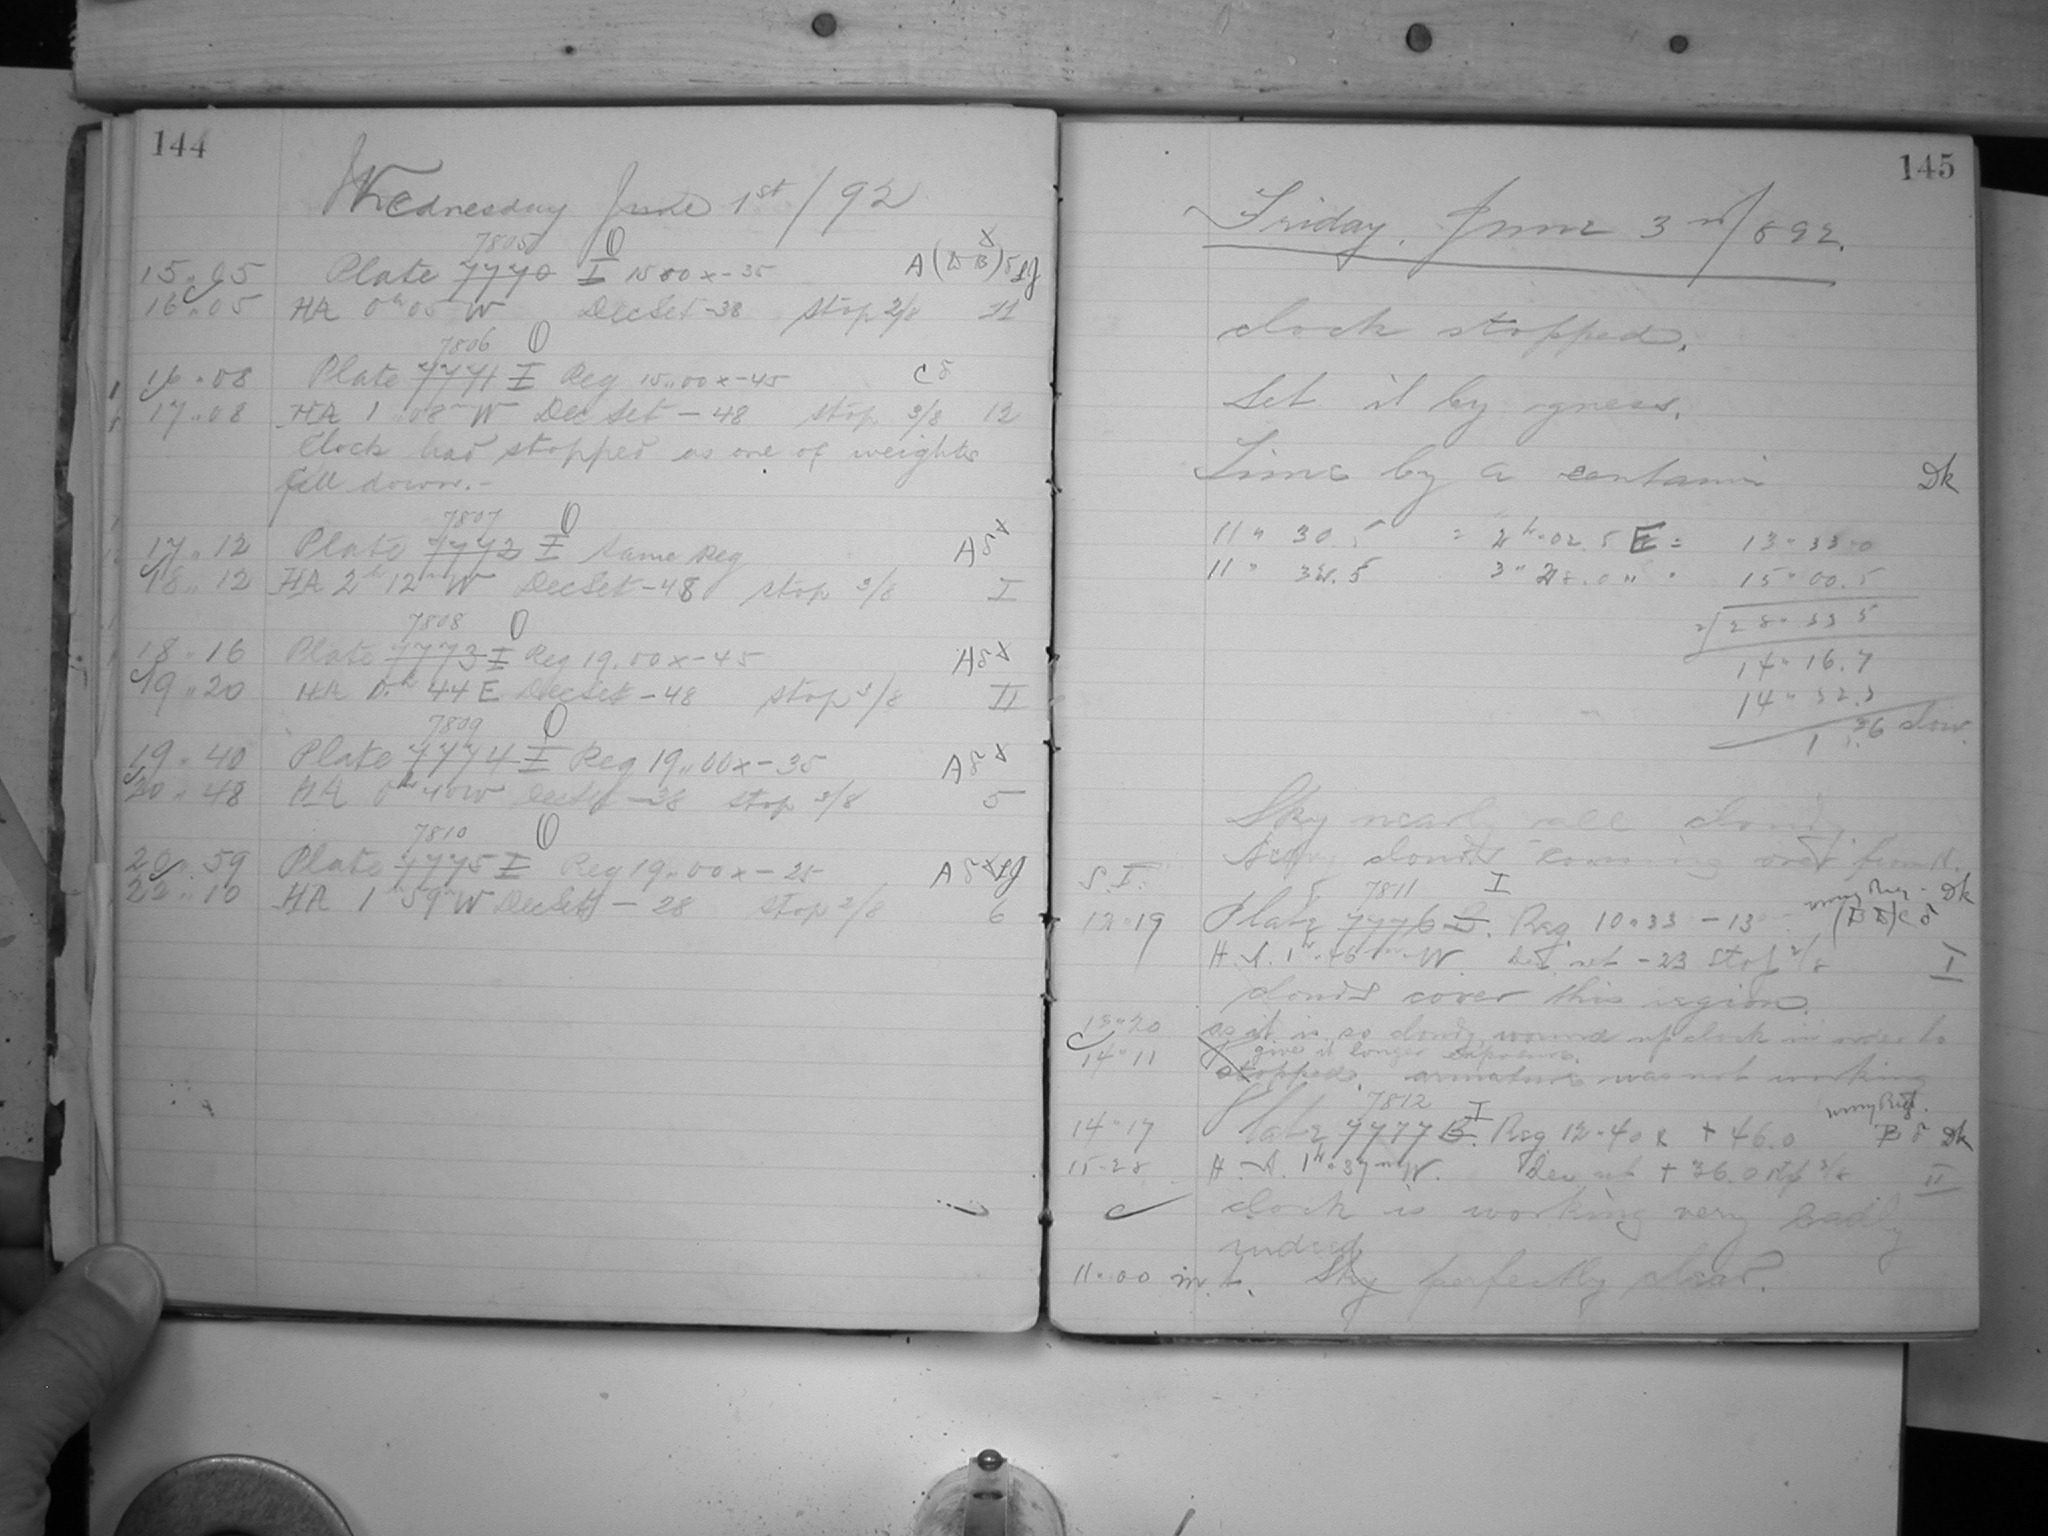 144
Wednesday June 1st/92
7805 O
15..05 Plate 7770 I 15 00 x -35 A (DB) δ LJ
16..05 HA 0h 05 W Dec Set -38 stop 2/8 11
7806 O
16..08 Plate 7771 I Reg 15..00 x -45 C δ
17..08 HA 1..08m W Dec Set -48 stop 3/8 12
Clock had stopped as one of weights
fell down.-
7807 O
17..12 Plate 7772 I Same Reg A δ x
18..12 HA 2h 12m W Dec Set -48 stop 3/8 I
7808 O
18..16 Plate 7773 I Reg 19..00 x -45 A δ x
19..20 HA 0h 44 E Dec Set -48 stop 3/8 II
7809 O
19..40 Plate 7774 I Reg 19..00 x -35 A δ x
20..48 HA 0h 40 W Dec Set -38 stop 3/8 5
7810 O
20..59 Plate 7775 I Reg 19..00 x -25 A δ x LJ
22..10 HA 1h 59m W Dec Set -28 stop 2/8 6
145
Friday. June 3rd/892.
clock stopped.
Set it by
Time by a Dk
11" 30.5 = 2h..02.5 E = 13" 33.0
11" 32.5 3" 28.0 " " 15" 00.5
2) 28" 33 5
14" 16.7
14" 32.3
36 slow.
Sky nearly all cloudy
clouds coming over from N.
S.T. 7811 I wrong Reg - Dk
12"19 Plate 7776 B. Reg. 10"33 -13 (B D) C δ
H.A. 1h"46m W. Dec set -23 Stop 2/8 I
clouds cover this region.
13"20 as it is so cloudy, wound up clock in order to
give it longer exposure.
14"11 stopped. armature was not working
7812 I wrong Reg.
14"17 Plate 7777 B. Reg 12"40 x +46.0 B δ Dk
15"28 H.A. 1h"37m W. Dec set +36.0 stp 3/8 II
clock is working very badly
indeed
11"00 m.t. Sky perfectly clear.